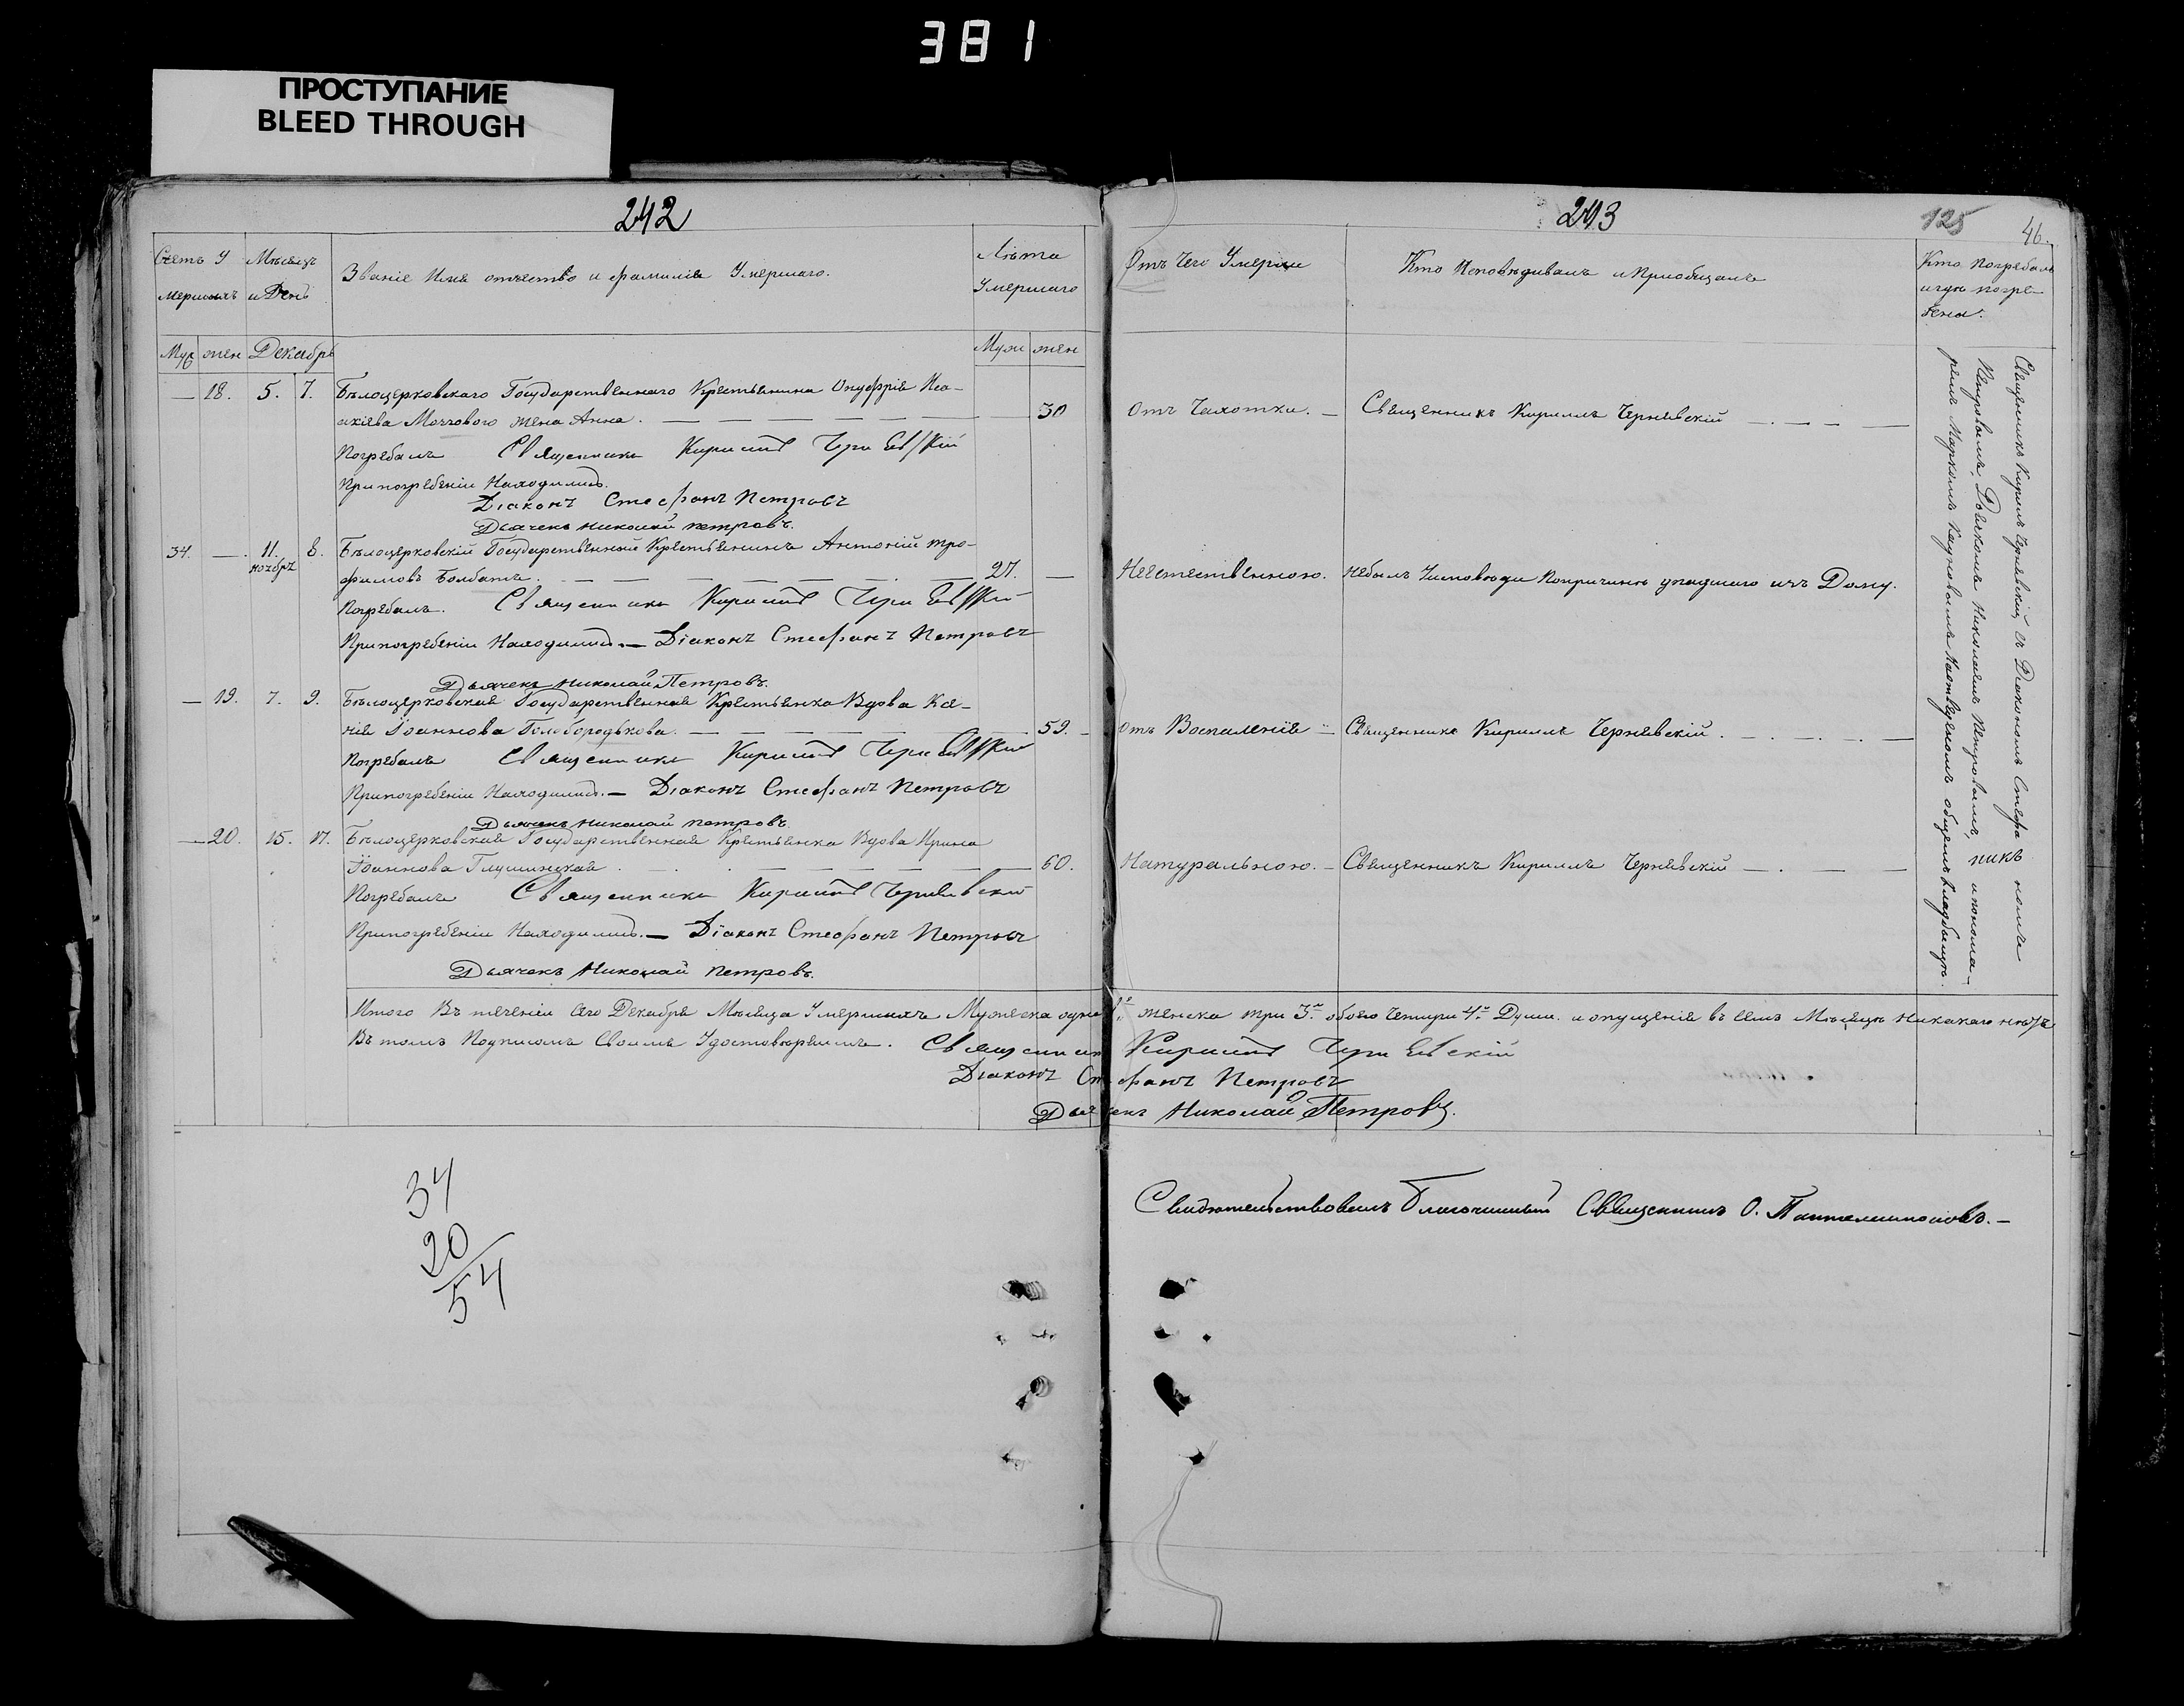 381
ПРОСТУПАНИЕ
BLEED THROUGH
242
Счетъ У мершихъ
Мѣсяцъ и День
Званіе Имя отчество и фамилія Умершаго.
Лѣта Умершаго
Муж жен Декабрь
Муж жен
— 18. 5. 7. Бѣлоцерковскаго Государственнаго Крестьянина Онуфрія Иса-
акіева Мачтового жена Анна. — 30
Погребалъ Священникъ Кирилъ Чернявскій
При погребеніи Находились.
Діаконъ Стефанъ Петровъ
Дьячекъ Николай Петровъ.
34. — 11. 8. Бѣлоцерковскій Государственный Крестьянинъ Антоній Тро-
ноябрь
фимовъ Болбатъ. 27. —
Погребалъ. Священникъ Кирилъ Чернявскій
При погребеніи Находились. — Діаконъ Стефанъ Петровъ
Дьячекъ Николай Петровъ.
— 19. 7. 9. Бѣлоцерковская Государственная Крестьянка Вдова Ксе-
нія Іоаннова Голобородькова. — 59.
Погребалъ Священникъ Кирилъ Чернявскій
При погребеніи Находились. — Діаконъ Стефанъ Петровъ
Дьячекъ Николай Петровъ.
— 20. 15. 17. Бѣлоцерковская Государственная Крестьянка Вдова Ирина
Іоаннова Глушинская. — 60.
Погребалъ Священникъ Кирилъ Чернявскій
При погребеніи Находились. — Діаконъ Стефанъ Петровъ
Дьячекъ Николай Петровъ.
34
20
54
243
125
46.
Отъ чего Умерли
Кто Исповѣдивалъ и Приобщалъ
Кто Погребалъ
и гдѣ погре-
бены.
Отъ Чахотки. — Священникъ Кириллъ Чернявскій
Неестественною. Небылъ Уисповѣди Попричинѣ упадшаго изъ Дому.
отъ Воспаленія — Священникъ Кириллъ Чернявскій.
Натуральною. — Священникъ Кириллъ Чернявскій
Священникъ Кирилъ Чернявскій съ Діакономъ Стефаномъ
Петровымъ, Дьячкомъ Николаемъ Петровымъ, и понома-
ремъ Маркомъ на отведенномъ общемъ кладбищѣ.
Итого Въ теченіи Сего Декабря Мѣсяца Умершихъ Мужеска одна 1. женска три 3. обоего четыри 4. Души. и опущенія въ семъ Мѣсяцѣ никакаго нѣтъ
Въ томъ Подписомъ Своимъ Удостовѣряемъ. Священникъ Кирилъ Чернявскій
Діаконъ Стефанъ Петровъ
Дьячекъ Николай Петровъ.
Свидѣтельствовалъ Благочинный Священникъ О. Пантелеимоновъ. —